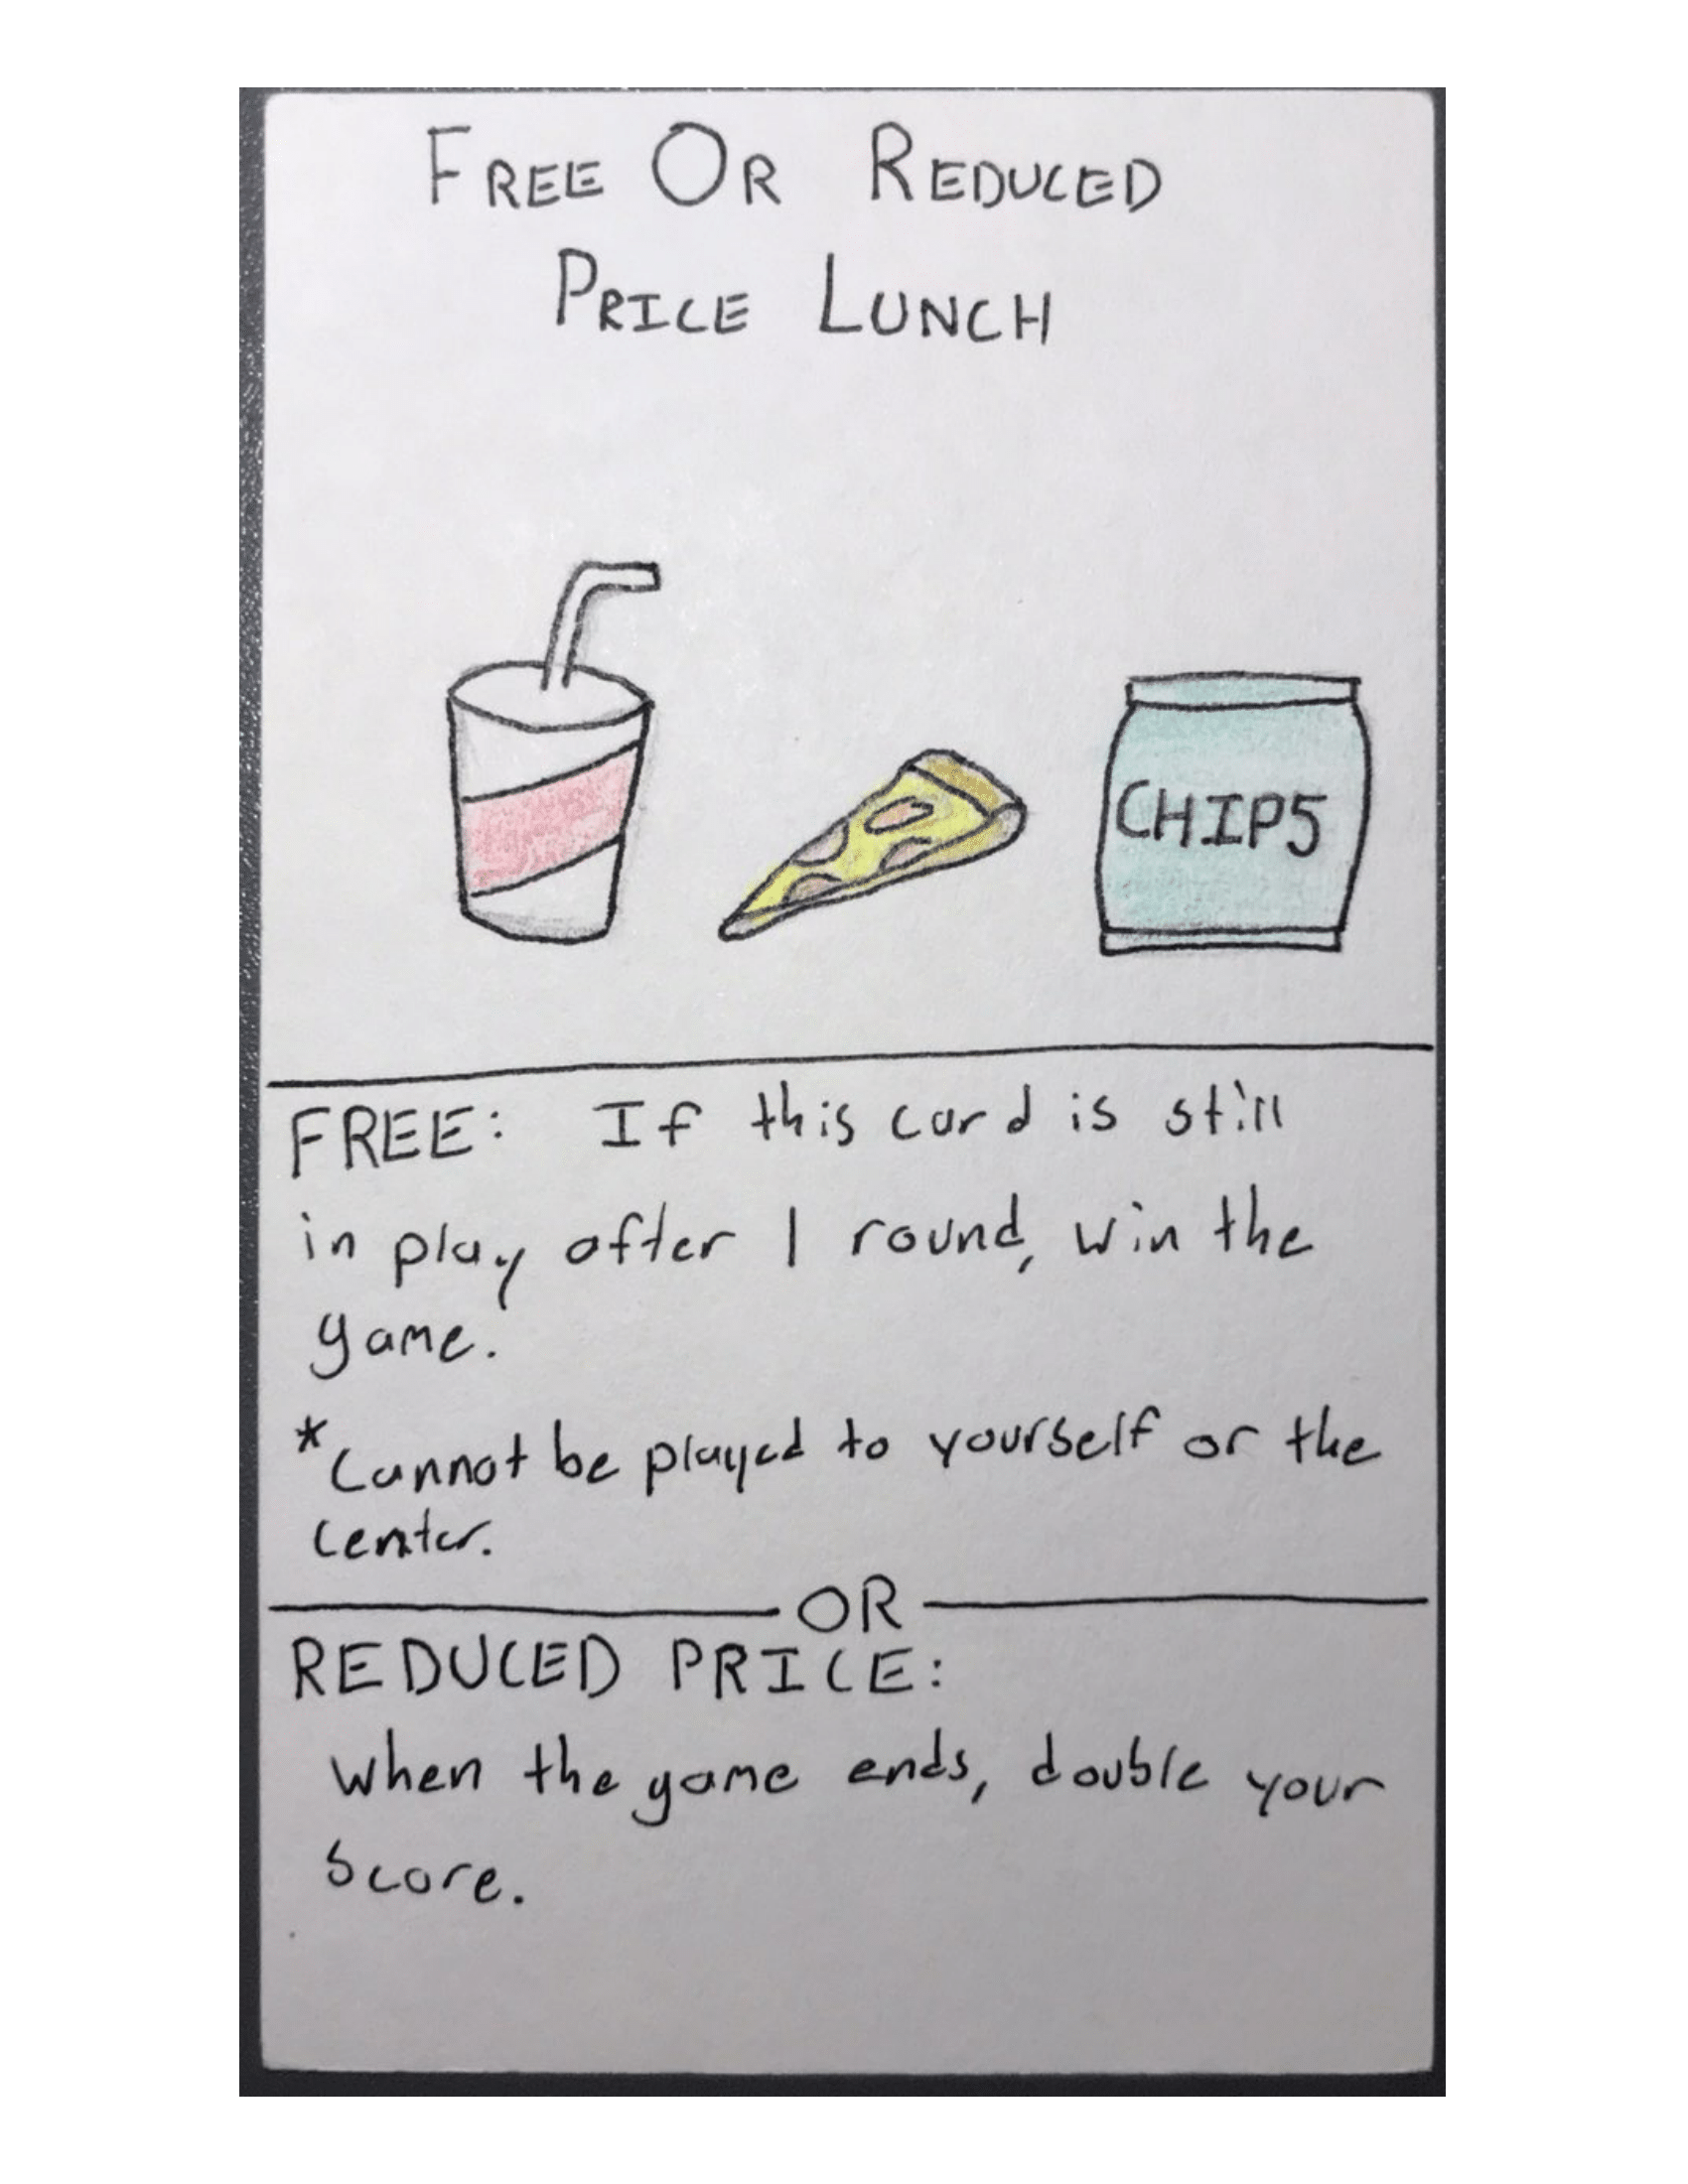 FREE OR REDUCED
PRICE LUNCH
CHIPS
FREE: If this card is still
in play after 1 round, win the
game.
*Cannot be played to yourself or the
center.
OR
REDUCED PRICE:
When the game ends, double your
score.